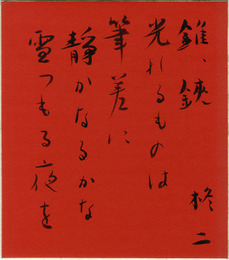 錐、鋏
光れるものは
筆差に
靜かなるかな
雪つもる夜を
柊二